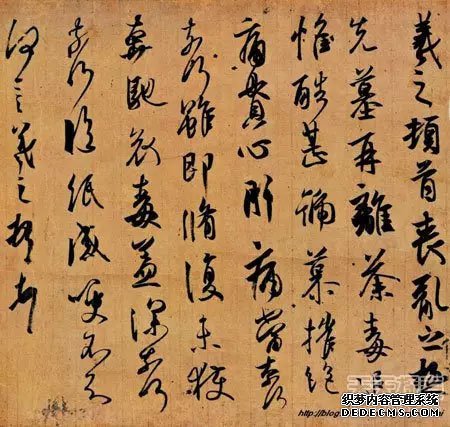 羲之頓首喪亂之極
先墓再離荼毒追
惟酷甚號慕摧絶
痛貫心肝痛當奈何
奈何雖即脩復未獲
奔馳哀毒益深奈何
奈何臨紙感哽不知
何言羲之頓首
http://blog
织梦内容管理系统
DEDECMS.COM